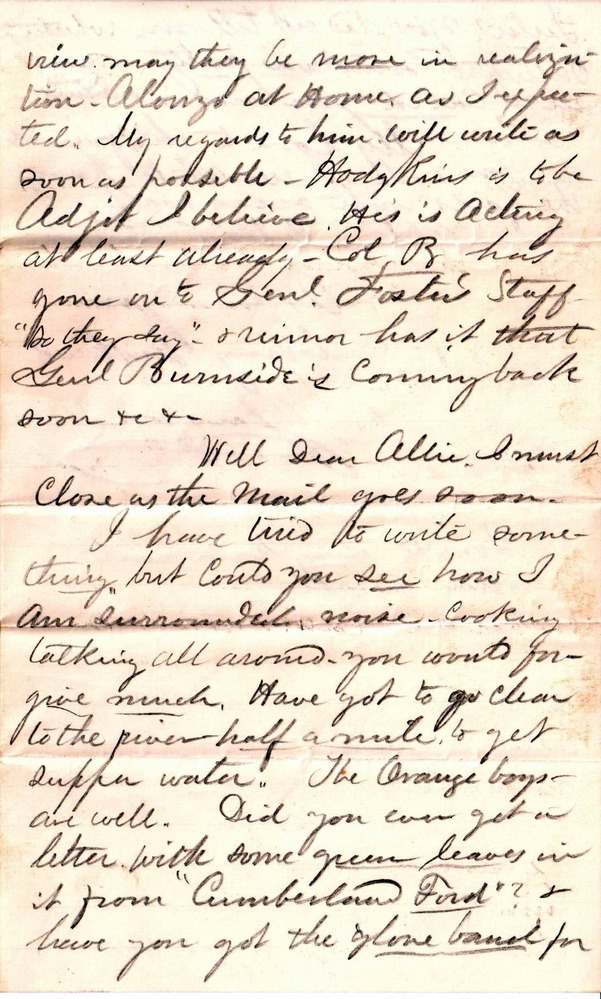 view. may they be more in realiza-
tion - Alonzo at Home. as I expec-
ted. My regards to him will write as
soon as possible - Hodgkins is to be
Adjt I believe. His is Acting
at least already - Col. B. has
gone on to Genl. Foster's Staff
"so they say" - & rumor has it that
Genl Burnside is Coming back
soon &c &c
Well Dear Allie. I must
Close as the Mail goes soon.
I have tried to write some-
thing, but Could you see how I
am surrounded, noise - Cooking
talking all around - you would for-
give much. Have got to go clear
to the river - half a mile. to get
supper water. The Orange boys -
are well. Did you ever get a
letter with some green leaves in
it from "Cumberland Ford"? &
have you got the glove band for